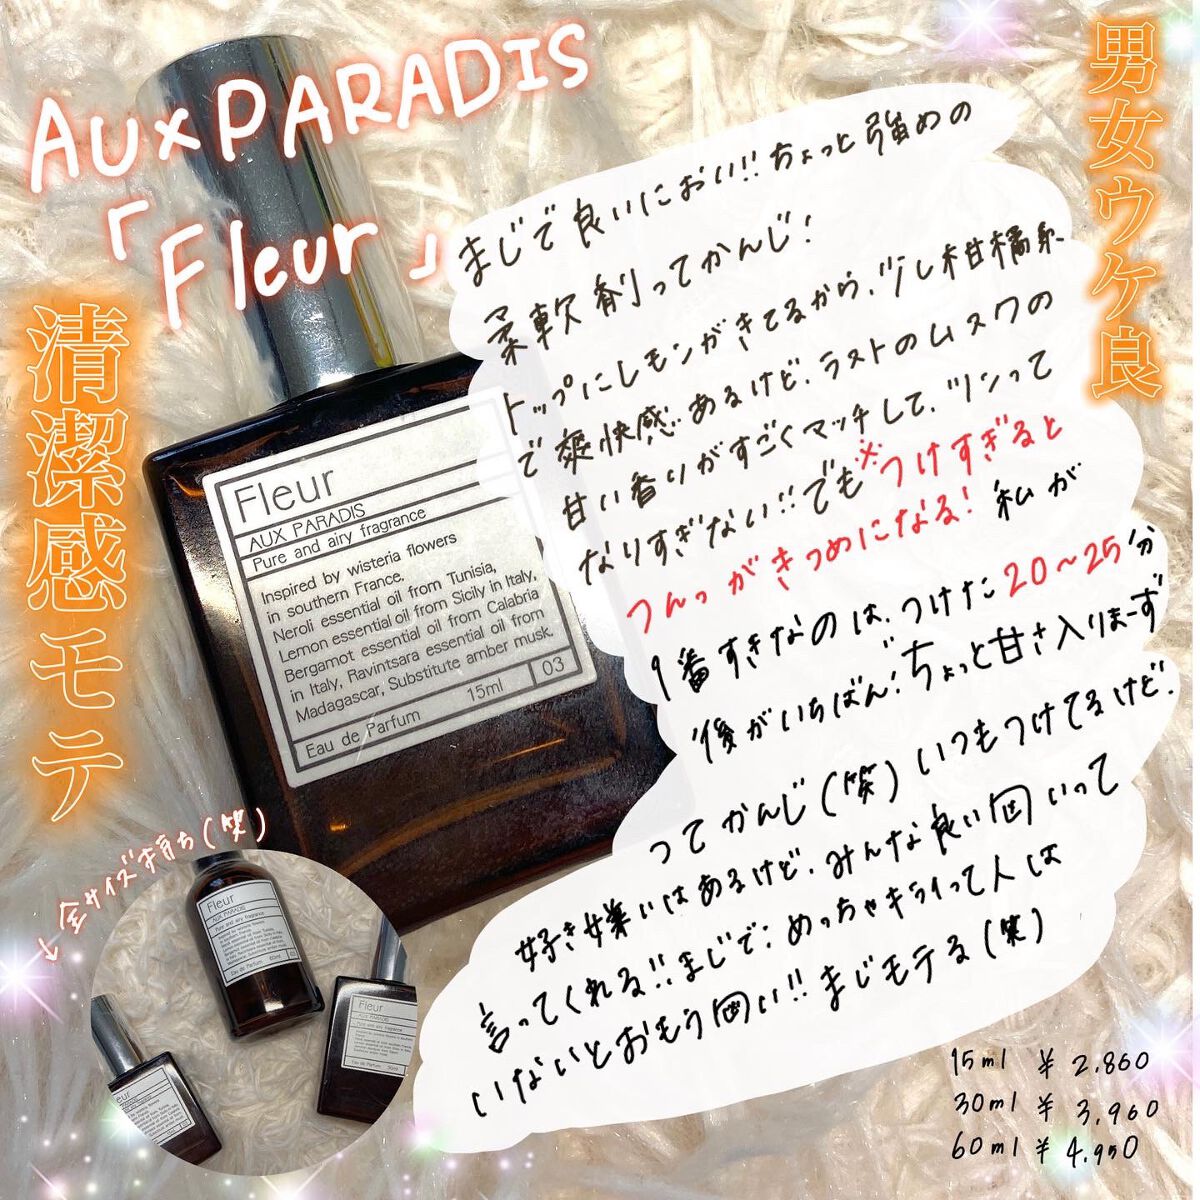 AUX PARADIS
「Fleur」
男女ウケ良
清潔感モテ
まじで良いにおい!!ちょっと強めの
柔軟剤ってかんじ!
トップにレモンがきてるから、少し柑橘系
で爽快感あるけど、ラストのムスクの
甘い香りがすごくマッチして、ツンって
なりすぎない!!でも※つけすぎると
つんっがきつめになる! 私が
1番すきなのは、つけた20~25分
後がいちばん!ちょっと甘さ入りまーす"
ってかんじ(笑)いつもつけてるけど、
好き嫌いはあるけど、みんな良い匂いって
言ってくれる!!まじで、めっちゃキライって人は
いないとおもう匂い!!まじモテる(笑)
Fleur
AUX PARADIS
Pure and airy fragrance
Inspired by wisteria flowers
in southern France.
Neroli essential oil from Tunisia,
Lemon essential oil from Sicily in Italy,
Bergamot essential oil from Calabria
in Italy, Ravintsara essential oil from
Madagascar, Substitute amber musk.
15ml
03
Eau de Parfum
↓全サイズ持ち(笑)
Fleur
AUX PARADIS
Pure and airy fragrance
Eau de Parfum 60ml
Fleur
AUX PARADIS
Fleur
AUX PARADIS
Pure and airy fragrance
Eau de Parfum
15ml ¥ 2.860
30ml ¥ 3.960
60ml ¥ 4.950